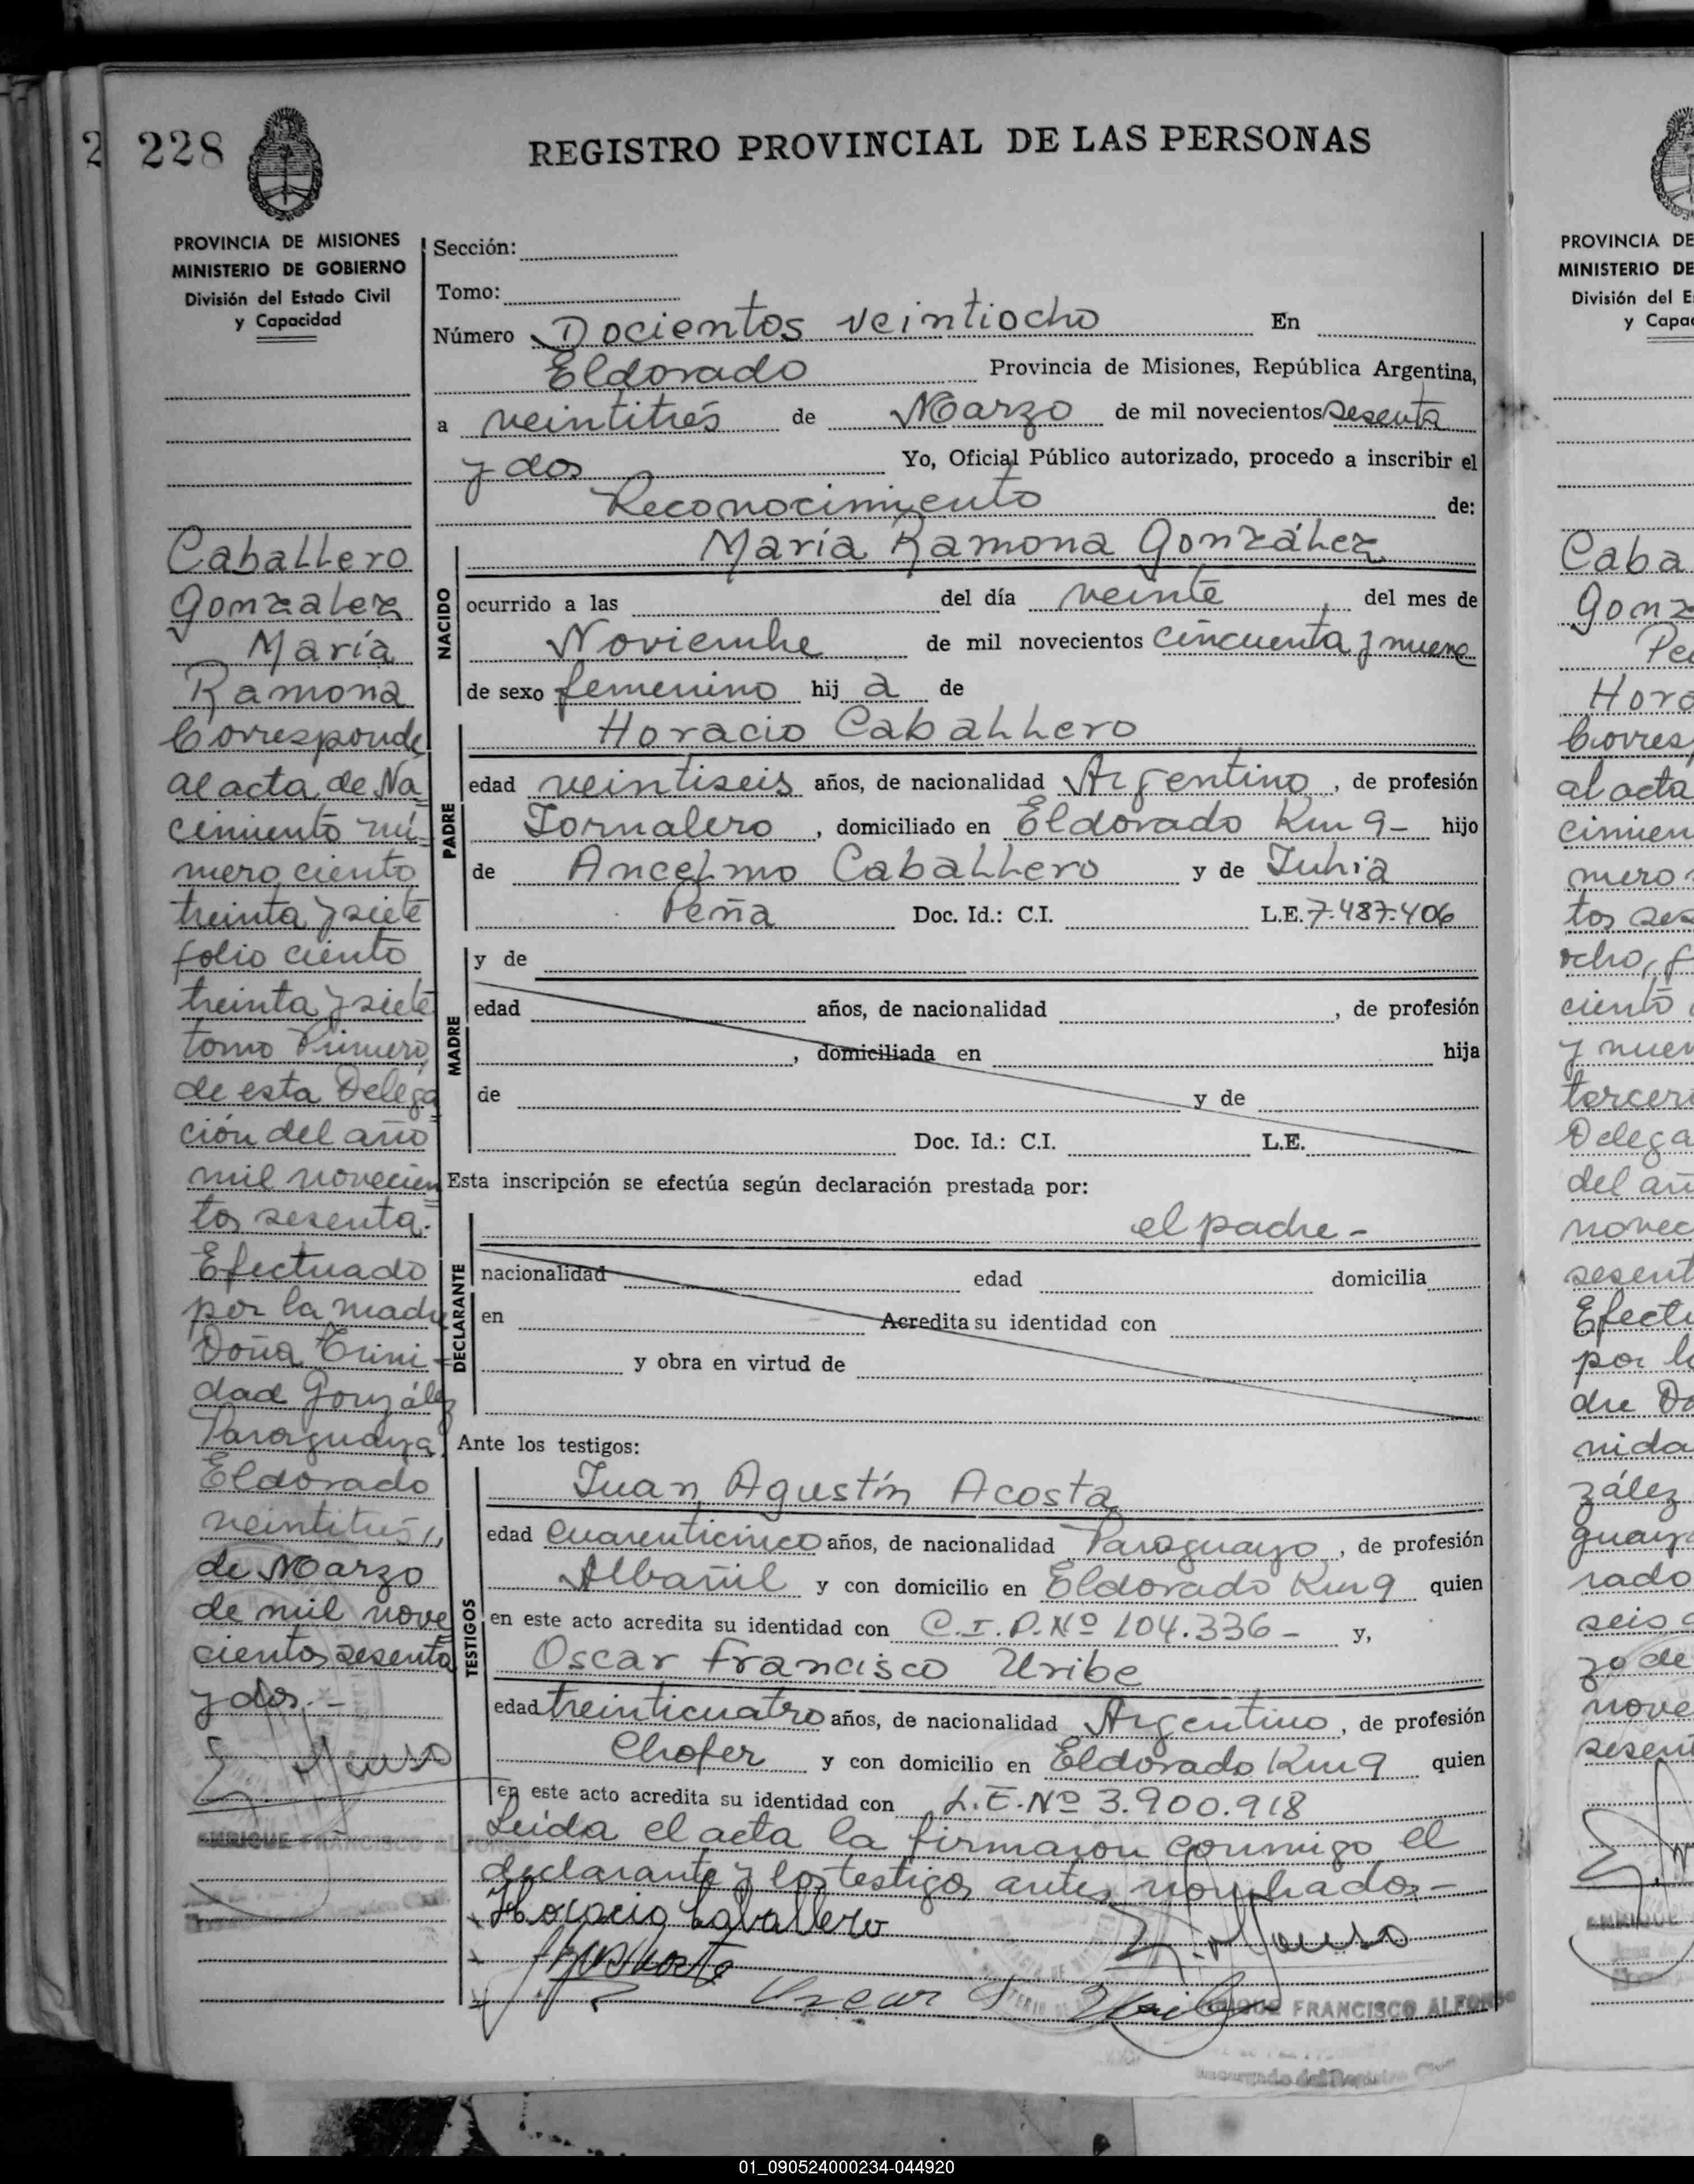 228
REGISTRO PROVINCIAL DE LAS PERSONAS
PROVINCIA DE MISIONES
MINISTERIO DE GOBIERNO
División del Estado Civil
y Capacidad
Caballero
Gonzalez
María
Ramona
Corresponde
al acta de Na=
cimiento nú=
mero ciento
treinta y siete
folio ciento
treinta y siete
tomo Primero,
de esta Delega
ción del año
mil novecien=
tos sesenta.
Efectuado
por la madre
Doña Trini-
dad González
Paraguaya.
Eldorado
veintitrés,
de Marzo
de mil nove
cientos sesenta
y dos.-
ENRIQUE FRANCISCO ALFONSO
Sección:
Tomo:
Número Docientos veintiocho En
Eldorado Provincia de Misiones, República Argentina,
a veintitrés de Marzo de mil novecientos sesenta
y dos Yo, Oficial Público autorizado, procedo a inscribir el
Reconocimiento de:
María Ramona González
NACIDO
ocurrido a las del día veinte del mes de
Noviembre de mil novecientos cincuenta y nueve
de sexo femenino hij a de
Horacio Caballero
PADRE
edad veintiseis años, de nacionalidad Argentino, de profesión
Jornalero, domiciliado en Eldorado Km 9- hijo
de Ancelmo Caballero y de Julia
Peña Doc. Id.: C.I. L.E. 7.487.406
y de
MADRE
edad años, de nacionalidad , de profesión
, domiciliada en hija
de y de
Doc. Id.: C.I. L.E.
Esta inscripción se efectúa según declaración prestada por:
el padre-
DECLARANTE
nacionalidad edad domicilia
en Acredita su identidad con
y obra en virtud de
Ante los testigos:
TESTIGOS
Juan Agustín Acosta
edad cuarenticinco años, de nacionalidad Paraguayo, de profesión
Albañil y con domicilio en Eldorado Km 9 quien
en este acto acredita su identidad con C.I.P. Nº 104.336- y,
Oscar Francisco Uribe
edad treinticuatro años, de nacionalidad Argentino, de profesión
Chofer y con domicilio en Eldorado Km 9 quien
en este acto acredita su identidad con L.E. Nº 3.900.918
Leída el acta la firmaron conmigo el
declarante y los testigos antes nombrados-
Horacio Caballero
Oscar F Uribe
FRANCISCO ALFONSO
Encargado del Registro Civil
PROVINCIA DE
MINISTERIO DE
División del E
y Capa
Caba
Gonz
Pe
Hora
Corres
al acta
cimien
mero
tos ses
ocho, f
ciento
y nuev
tercero
Delega
del añ
novec
sesent
Efectu
por l
dre Do
nida
zález
guaya
rado
seis
zo de
nove
sesen
01_090524000234-044920